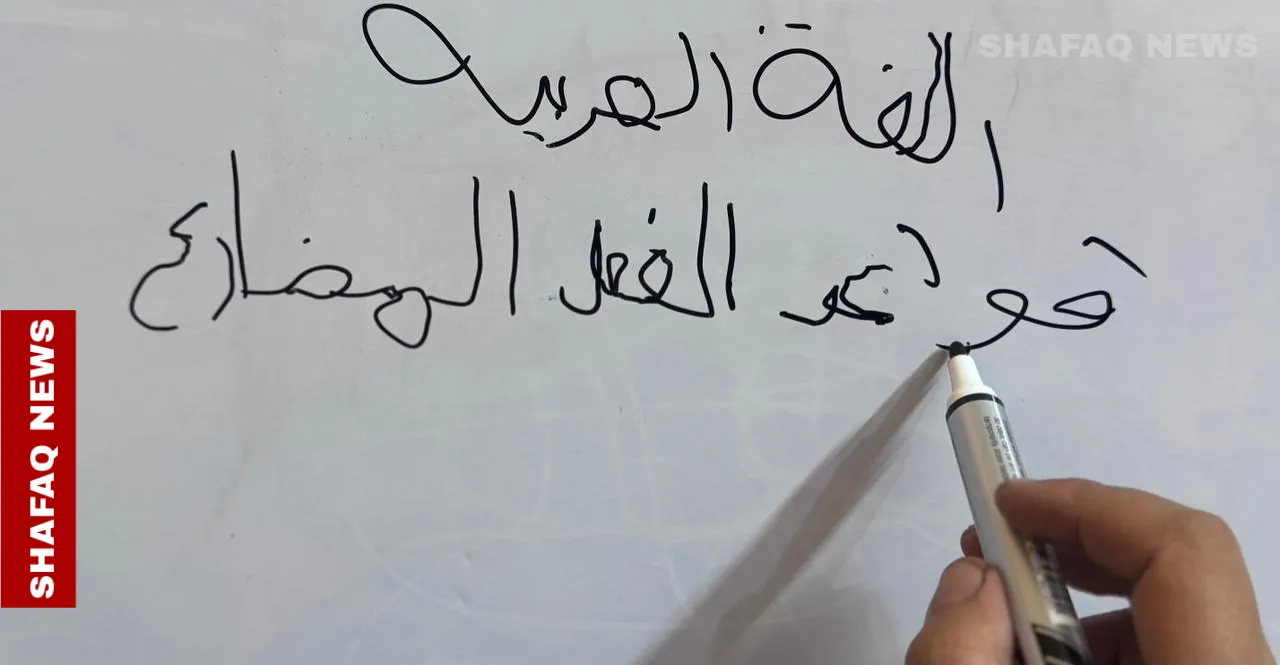 SHAFAQ NEWS
اللغة العربيه
قواعد الفعل المضارع
SHAFAQ NEWS